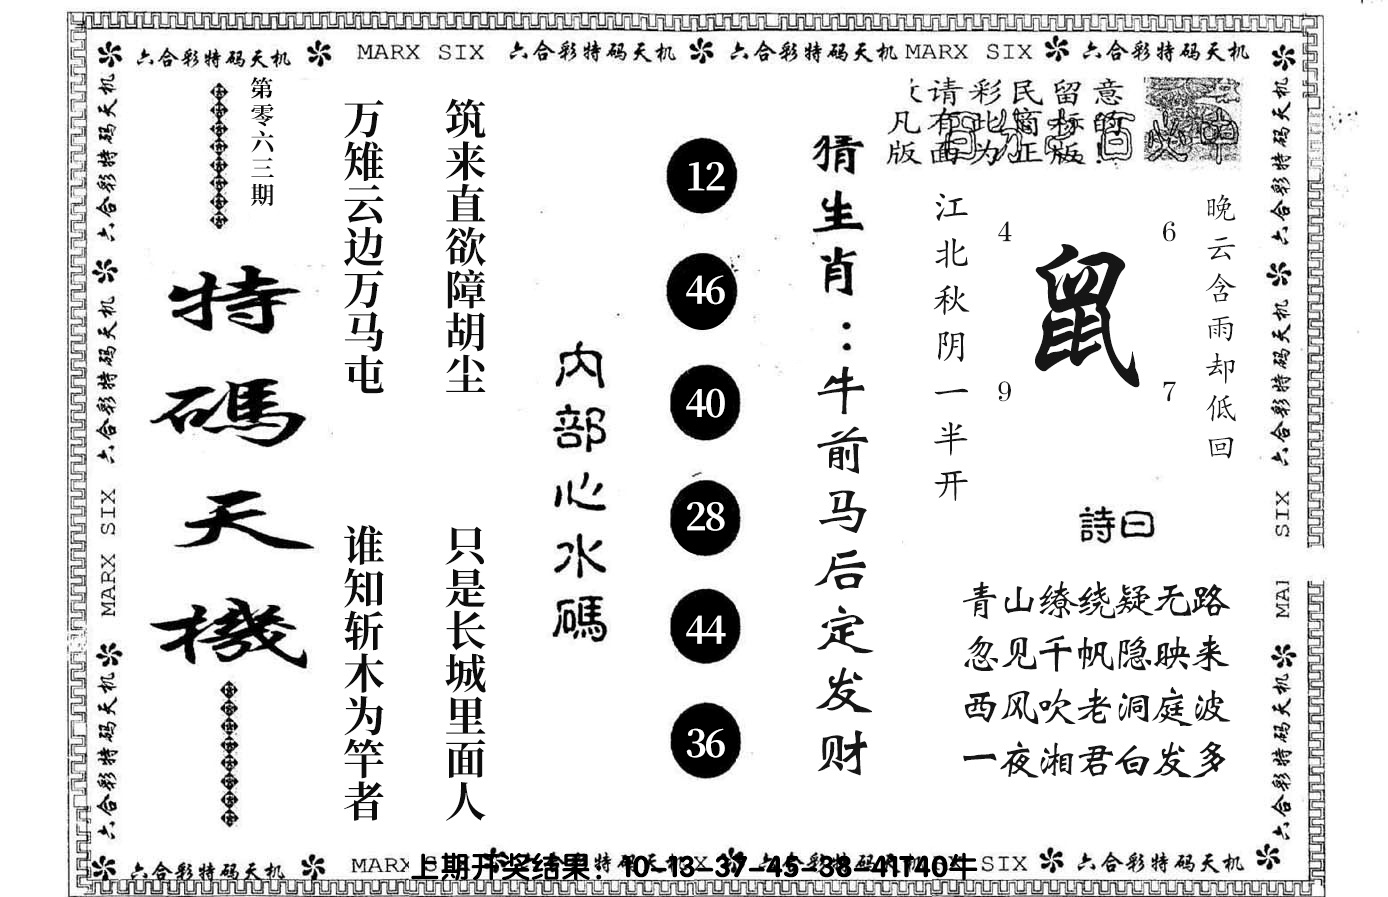 六合彩特码天机 MARX SIX 六合彩特码天机 六合彩特码天机 MARX SIX 六合彩特码天机
意的!
留标版
民商正
彩此为
请有面
凡版
晚云含雨却低回
4 6
鼠
9 7
江北秋阴一半开
詩曰
青山缭绕疑无路
忽见千帆隐映来
西风吹老洞庭波
一夜湘君白发多
猜生肖:牛前马后定发财
12
46
40
28
44
36
内部心水碼
筑来直欲障胡尘 只是长城里面人
万雉云边万马屯 谁知斩木为竿者
第零六三期
特碼天機
六合彩特码天机 六合彩特码天机 MARX SIX 六合彩特码天机
六合彩特码天机 六合彩特码天机 SIX MAI 六合彩特码天机
六合彩特码天机 MARX SIX 六合彩特码天机
上期开奖结果:10-13-37-45-38-41T40牛